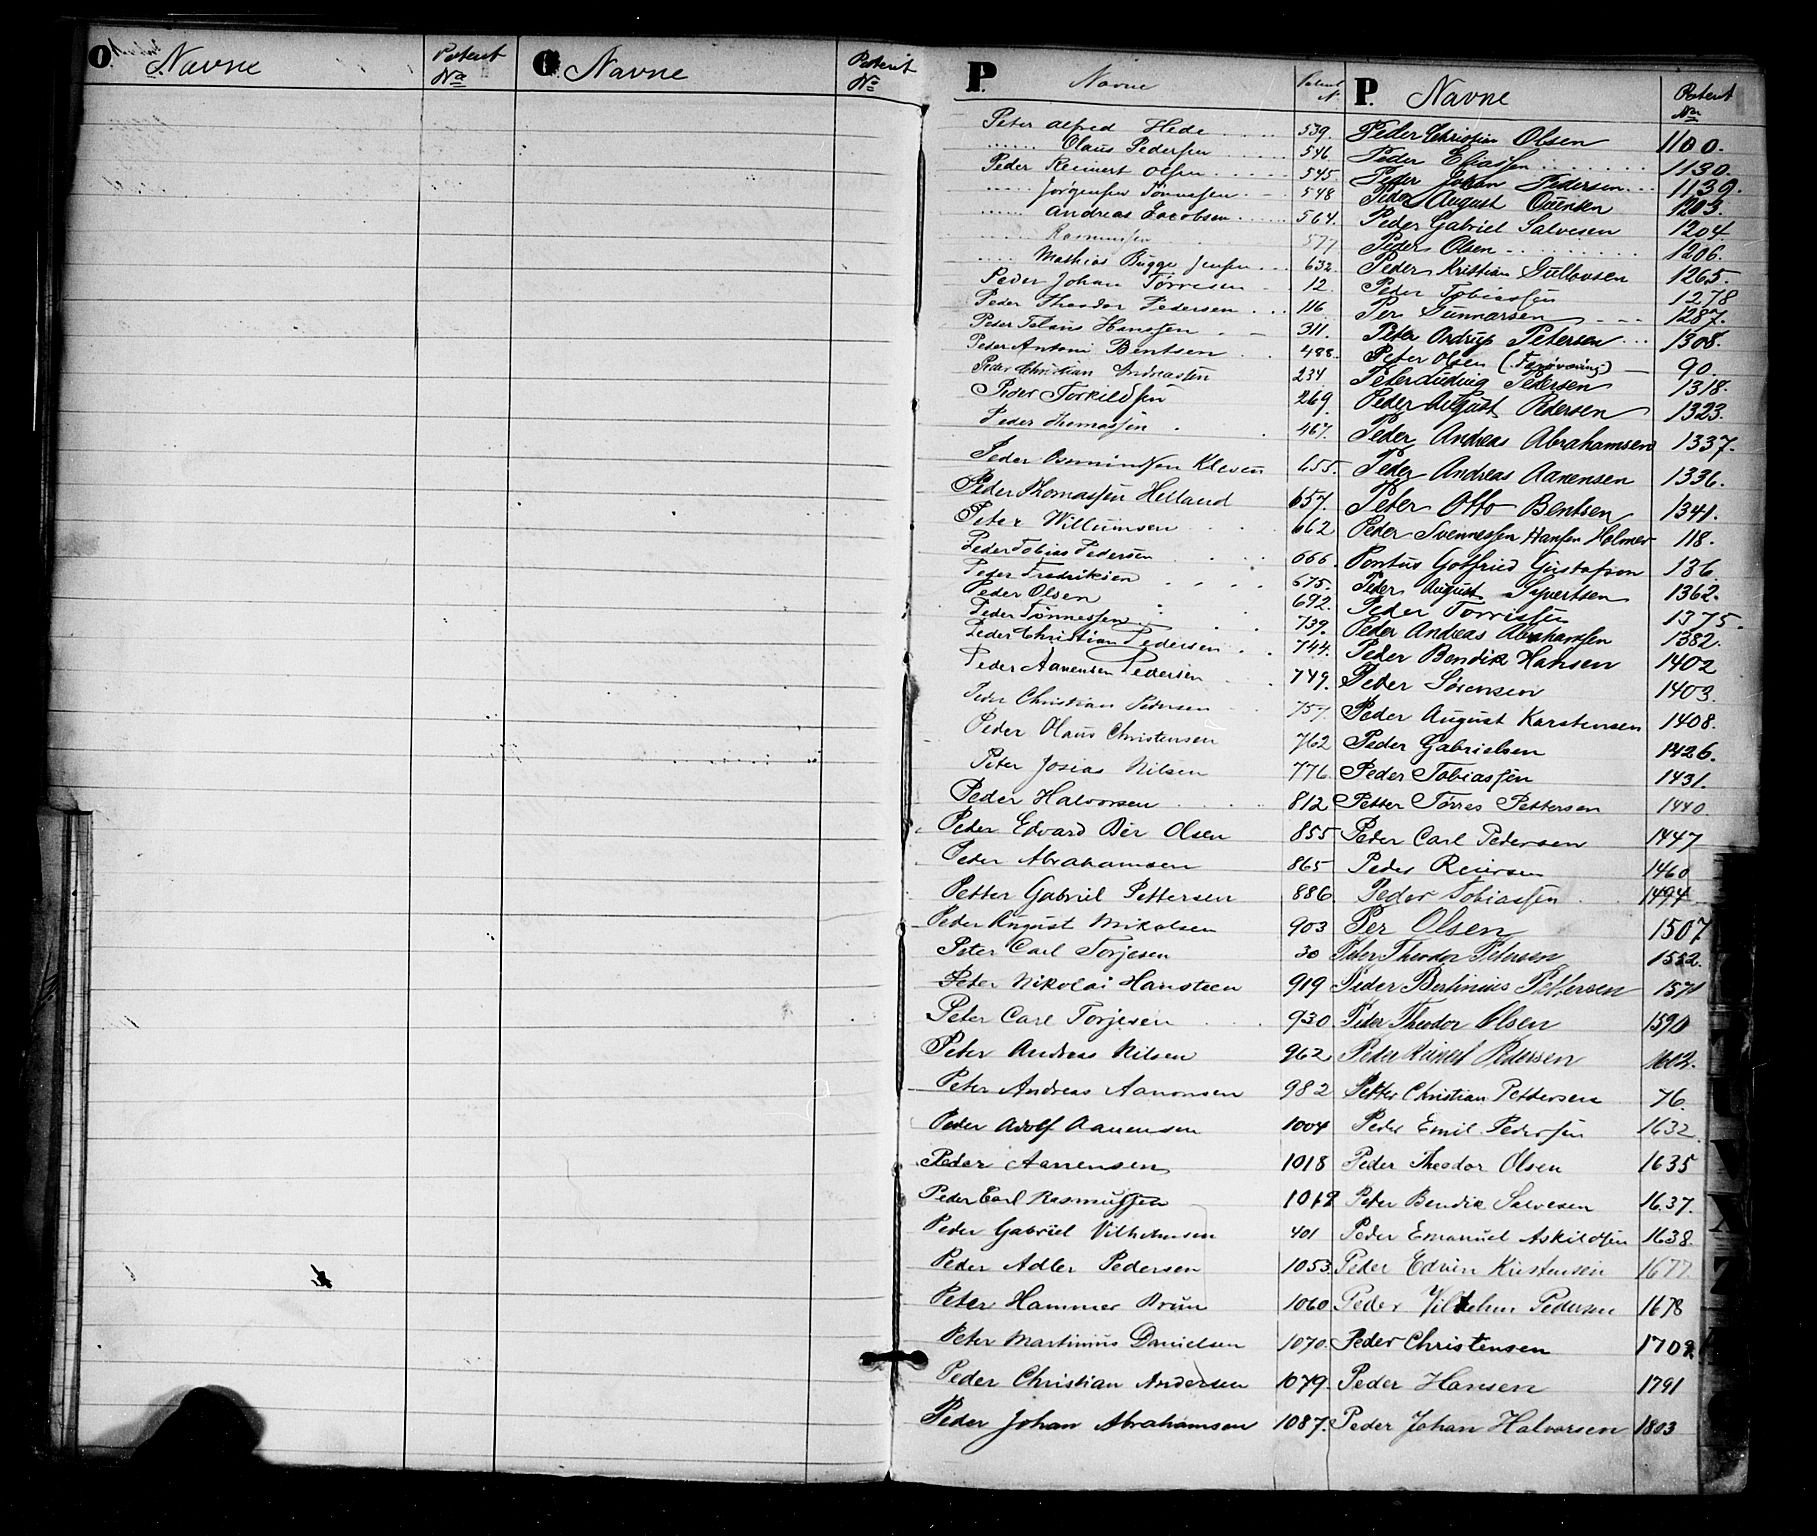 O. Navne Patent No
O Navne Patent No
P. Navne Patent N.
Peter Alfred Hede 539.
...... Olaus Pedersen 546.
Peder Reinert Olsen 545.
...... Jørgensen Tønnessen 548
...... Andreas Jacobsen 564.
...... Rasmussen 577
..... Mathias Bugge Jensen 632.
Peder Johan Tørresen 12.
Peder Theodor Pedersen 116.
Peder Tolaus Hanssen 311.
Peder Antoni Bentsen 488.
Peder Christian Andreassen 234
Peder Torkildsen 269.
Peder Thomassen 467.
Peder Kleven 655.
Peder Thomassen Helland 657.
Peter Willumsen 662
Peder Tobias Pedersen 666.
Peder Fredriksen 675.
Peder Olsen 692.
Peder Tønnessen 739.
Peder Christian Pedersen 744.
Peder Aanensen Pedersen 749.
Peder Christian Pedersen 757
Peder Olaus Christensen 762
Peter Josias Nilsen 776.
Peder Halvorsen 812
Peder Edvard Ber Olsen 855
Peder Abrahamsen 865
Petter Gabriel Pettersen 886
Peder August Mikalsen 903
Peter Carl Torjesen 30
Peter Nikolai Hansteen 919
Peter Carl Torjesen 930.
Peter Andreas Nilsen 962
Peter Andreas Aanonsen 982
Peder Adolf Aanensen 1004
Peder Aanensen 1018
Peder Carl Rasmussen 1019
Peder Gabriel Vilhelmsen 401
Peder Adler Pedersen 1053.
Peter Hammer Brun 1060.
Peter Martinius Danielsen 1070.
Peder Christian Andersen 1079.
Peder Johan Abrahamsen 1087.
P. Navne Patent No
Peder Christian Olsen 1100.
Peder Eliassen 1130.
Petter Johan Pedersen 1139.
Peder August 1203.
Peder Gabriel Salvesen 1204
Peder Olsen 1206.
Peder Kristian Gullovsen 1265.
Peder Tobiassen 1278
Per Gunnarsen 1287.
Peter Ordrup Petersen 1308.
Peter Olsen 90.
Peter Ludvig Pedersen 1318.
Peder August Pedersen 1323.
Peder Andreas Abrahamsen 1337.
Peder Andreas Aanensen 1336.
Peter Otto Bentsen 1341.
Peder Svennessen Hansen Holmer 118.
Pontus Gotfried Gustafson 136.
Peder August Syvertsen 1362.
Peder Torrissen 1375.
Peder Andreas Abrahamsen 1382.
Peder Bendik Hansen 1402
Peder Sørensen 1403.
Peder August Karstensen 1408.
Peder Gabrielsen 1426.
Peder Tobiassen 1431.
Petter Tørres Pettersen 1440.
Peder Carl Pedersen 1447
Peder Reiersen 1460
Peder Tobiassen 1494
Per Olsen 1507
Peter Theodor Petersen 1552.
Peder Bertinius Pettersen 1571
Peder Theodor Olsen 1590
Peder Reinert Pedersen 1602.
Petter Christian Pettersen 76.
Peder Emil Pedersen 1632.
Peder Theodor Olsen 1635
Peter Bendik Salvesen 1637.
Peder Emanuel Askildsen 1638.
Peder Edvin Kristensen 1677.
Peder Vilhelm Pedersen 1678
Peder Christensen 1709.
Peder Hansen 1791
Peder Johan Halvorsen 1803